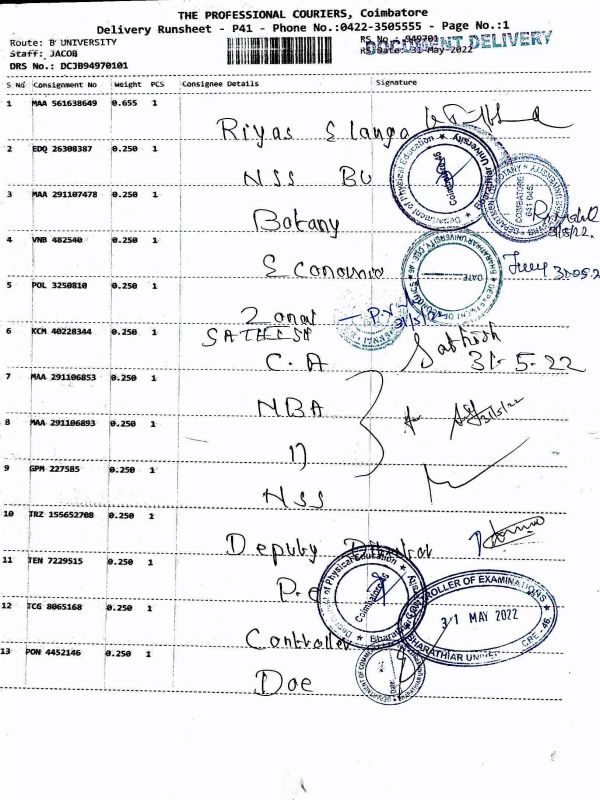 THE PROFESSIONAL COURIERS, Coimbatore
Delivery Runsheet - P41 - Phone No.:0422-3505555 - Page No.:1
Route: B UNIVERSITY
RS No.: 949701
DOCUMENT DELIVERY
Staff: JACOB
RS Date: 31-May-2022
DRS No.: DCJB94970101
S No Consignment No Weight PCS Consignee Details Signature
1 MAA 561638649 0.655 1
Riyas Elango
2 EDQ 26308387 0.250 1
NSS BU
3 MAA 291107478 0.250 1
Botany
31/5/22.
4 VNB 482540 0.250 1
Economic
5 POL 3250810 0.250 1
Zonal
31/5/22
6 KCM 40228344 0.250 1
SATHEESH
C.A
Sathish
31-5-22
7 MAA 291106853 0.250 1
NBA
31/5/22
8 MAA 291106893 0.250 1
17
9 GPM 227585 0.250 1
NSS
10 TRZ 155652708 0.250 1
Deputy
11 TEN 7229515 0.250 1
P.e
Department of Physical Education
Coimbatore
CONTROLLER OF EXAMINATIONS
31 MAY 2022
BHARATHIAR UNIVER
CBE - 46
12 TCG 8065168 0.250 1
Controller
13 PON 4452146 0.250 1
Doe